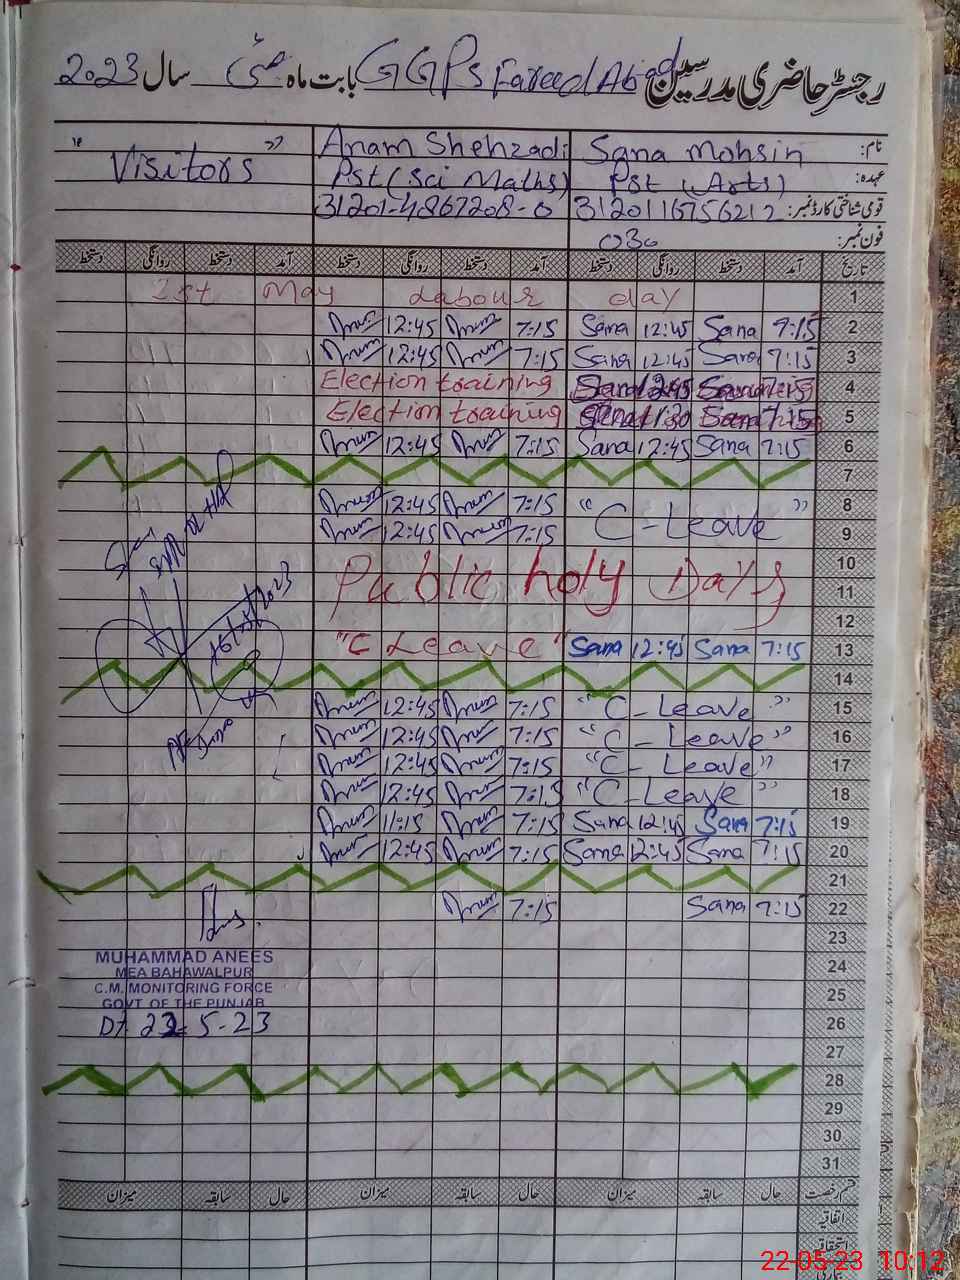 رجسٹر حاضری مدرسین GGPS Fareed Abad بابت ماہ مئی سال 2023
نام: Sana Mohsin Anam Shehzadi "Visitors"
عہدہ: Pst (Arts) Pst (Sci Maths)
قومی شناختی کارڈ نمبر: 3120116756212 31201-4867208-0
فون نمبر: 030
تاریخ آمد دستخط روانگی دستخط آمد دستخط روانگی دستخط آمد دستخط روانگی دستخط
1 1st May Labour day
2 7:15 Sana 12:45 Sana 7:15 12:45
3 7:15 Sana 12:45 Sana 7:15 12:45
4 7:15 Sana 12:45 Sana Election training
5 7:15 Sana 11:30 Sana Election training
6 7:15 Sana 12:45 Sana 7:15 12:45
7
8 "C-Leave" 7:15 12:45
9 7:15 12:45
10 Public holy Days
11
12
13 7:15 Sana 12:45 Sana "C Leave"
14
15 "C-Leave" 7:15 12:45
16 "C-Leave" 7:15 12:45
17 "C-Leave" 7:15 12:45
18 "C-Leave" 7:15 12:45
19 7:15 Sana 12:45 Sana 7:15 11:15
20 7:15 Sana 12:45 Sana 7:15 12:45
21
22 7:15 Sana 7:15
23
MUHAMMAD ANEES
24
MEA BAHAWALPUR
C.M. MONITORING FORCE
25
GOVT OF THE PUNJAB
26 Dt 22-5-23
27
28
29
30
31
قسم رخصت حال سابقہ میزان حال سابقہ میزان حال سابقہ میزان
اتفاقیہ
استحقاقیہ
22-05-23 10:12